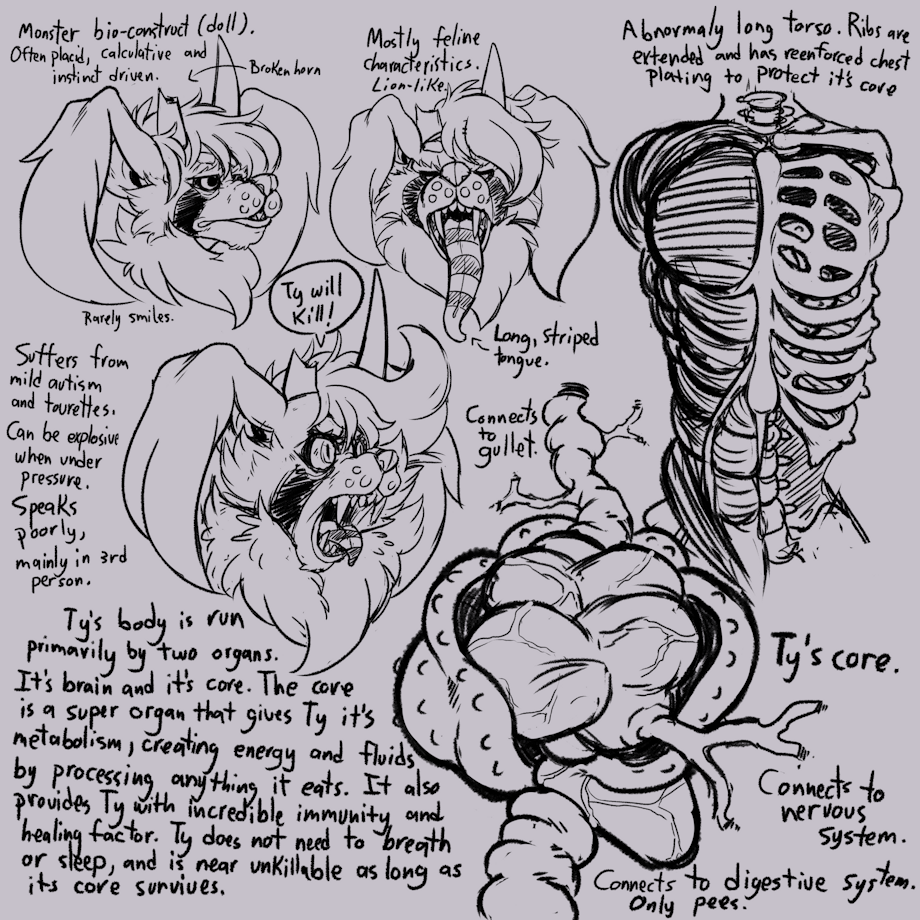 Monster bio-construct (doll).
Often placid, calculative and
instinct driven.
Broken horn
Mostly feline
characteristics.
Lion-like.
Abnormaly long torso. Ribs are
extended and has reenforced chest
plating to protect it's core
Rarely smiles.
Ty will
Kill!
Long, striped
tongue.
Suffers from
mild autism
and tourettes.
Can be explosive
when under
pressure.
Speaks
poorly,
mainly in 3rd
person.
Connects
to
gullet.
Ty's body is run
primarily by two organs.
It's brain and it's core. The core
is a super organ that gives Ty it's
metabolism, creating energy and fluids
by processing anything it eats. It also
provides Ty with incredible immunity and
healing factor. Ty does not need to breath
or sleep, and is near unkillable as long as
its core survives.
Ty's core.
Connects to
nervous
system.
Connects to digestive system.
Only pees.